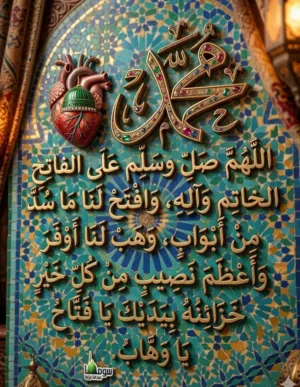 محمد
اللهُمَّ صَلِّ وَسَلِّم عَلَى الفَاتِحِ
الخَاتِمِ وَآلِهِ، وَافْتَحْ لَنَا مَا سُدَّ
مِنْ أَبْوَابٍ، وَهَبْ لَنَا أَوْفَرَ
وَأَعْظَمَ نَصِيبٍ مِنْ كُلِّ خَيْرٍ
خَزَائِنُهُ بِيَدَيْكَ يَا فَتَّاحُ
يَا وَهَّابُ.